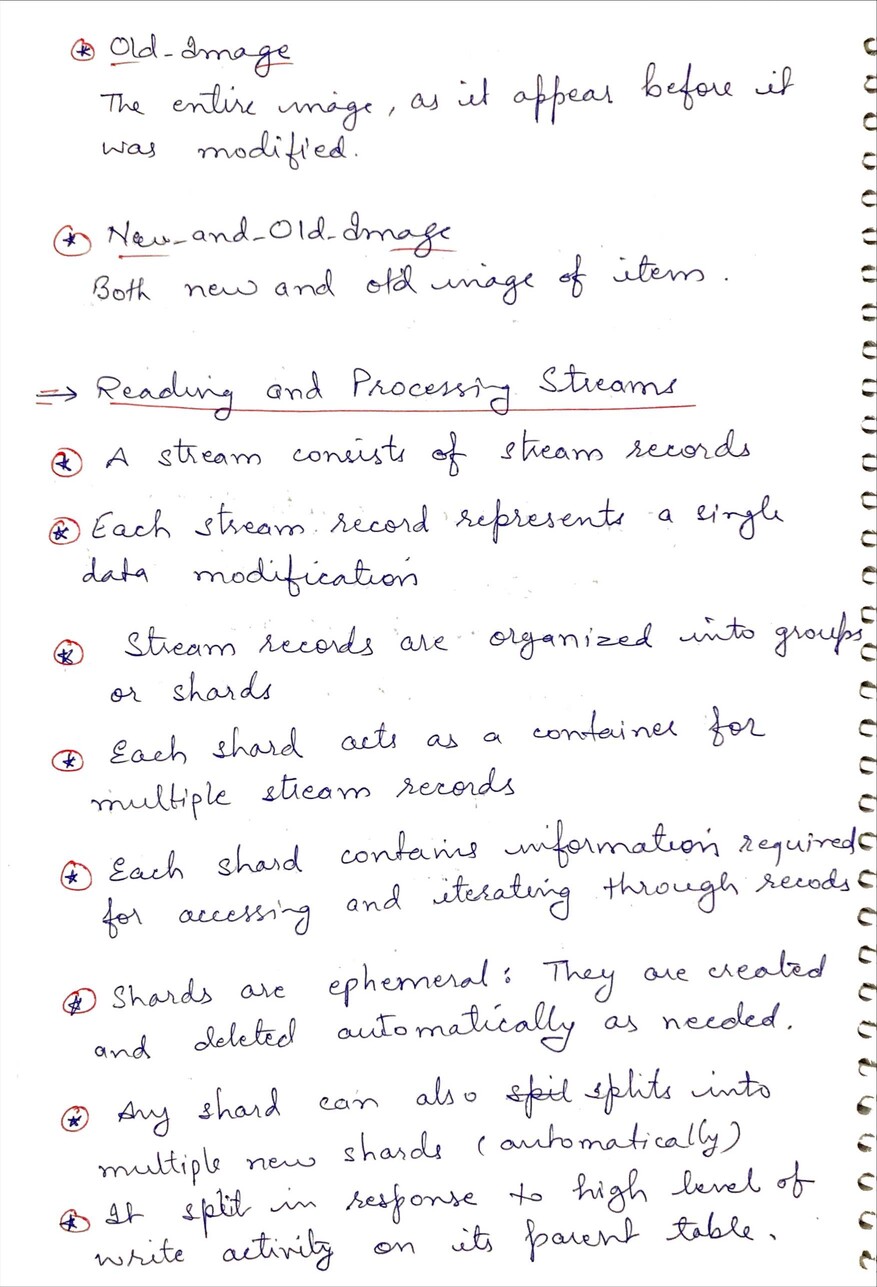 * Old-Image
The entire image, as it appear before it
was modified.
* New-and-Old-Image
Both new and old image of item.
⇒ Reading and Processing Streams
* A stream consists of stream records
* Each stream record represents a single
data modification
* Stream records are organized into groups
or shards
* Each shard acts as a container for
multiple stream records
* Each shard contains information required
for accessing and iterating through recods
* Shards are ephemeral: They are created
and deleted automatically as needed.
* Any shard can also spil splits into
multiple new shards (automatically)
* It split in response to high level of
write activity on its parent table.